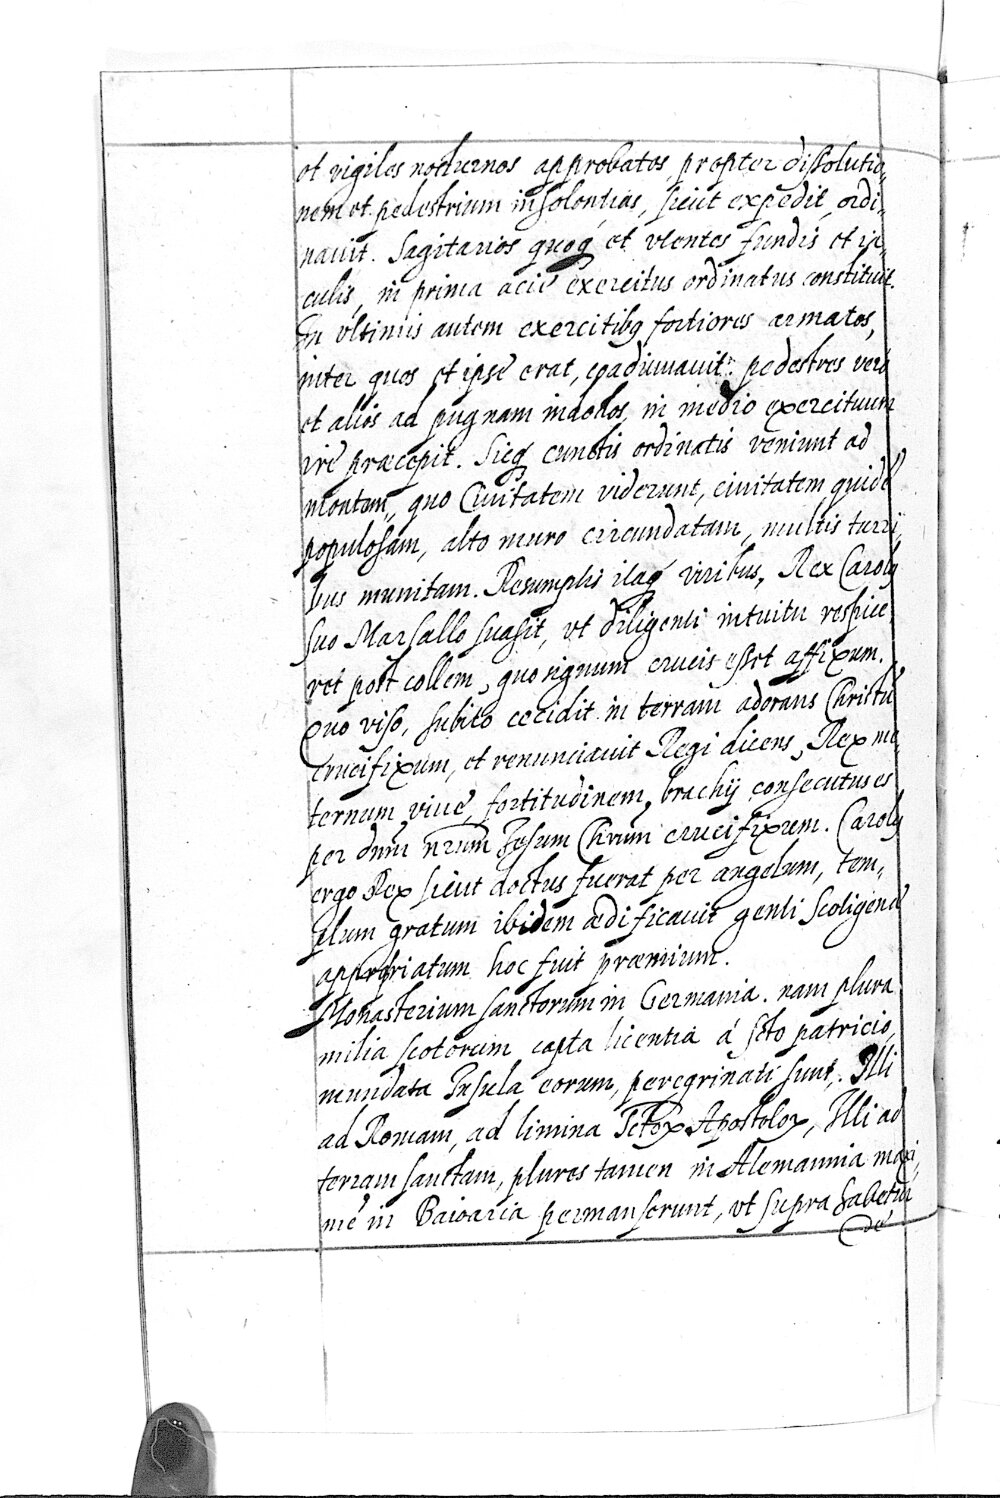 et vigiles nocturnos approbatos propter dissolutio,
nem et pedestrium insolentias, sicut expedit, ordi,
nauit. Sagitarios quoq et vtentes fundis et ia,
culis, in prima acie exercitus ordinatus constituit.
In vltimis autem exercitibq fortiores armatos,
inter quos et ipse erat, coadunauit: pedestres vero
et alios ad pugnam indoctos, in medio exercituum
ire præcepit. Sicq cunctis ordinatis veniunt ad
montem, quo Ciuitatem viderunt, ciuitatem quidē
populosam, alto muro circundatam, multis turri,
bus munitam. Resumptis itaq viribus, Rex Carolq
suo Marsallo suasit, vt diligenti intuitu respice,
ret post collem, quo signum crucis esset affixum.
Quo viso, subito cecidit in terram adorans Christū
Crucifixum, et renunciauit Regi dicens, Rex in æ,
ternum viue, fortitudinem brachij consecutus es
per dnm nrum Jesum Chrum crucifixum. Carolq
ergo Rex sicut doctus fuerat per angelum, tem,
plum gratum ibidem ædificauit genti Scoligenæ
appropriatum hoc fuit præmium.
Monasterium sanctorum in Germania. nam plura
milia scotorum capta licentia á scto patricio,
mundata Insula eorum, peregrinati sunt. Illi
ad Romam, ad limina Sctoꝝ Apostoloꝝ, Illi ad
terram sanctam, plures tamen in Alemannia maxi,
me in Baioaria permanserunt, vt supra habetur
de